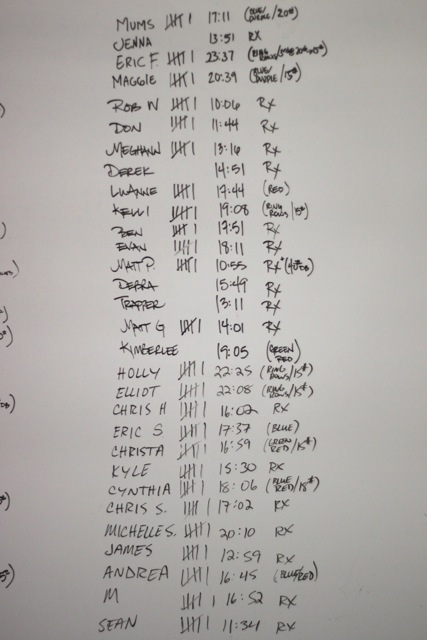 MUMS 𝍸 I 17:11 (BLUE/PURPLE/20#)
JENNA 13:51 RX
ERIC F. 𝍸 I 23:37 (RING ROWS/
MAGGIE 𝍸 I 20:39 (BLUE/PURPLE/15#)
ROB W 𝍸 I 10:06 RX
DON 𝍸 I 11:44 RX
MEGHANN 𝍸 I 13:16 RX
DEREK 14:51 RX
LUANNE 𝍸 I 17:44 (RED)
KELLI 𝍸 I 19:08 (RING ROWS/15#)
BEN 𝍸 I 17:51 RX
EVAN 𝍸 I 18:11 RX
MATT P. 𝍸 I 10:55 RX
DEBRA 15:49 RX
TRAPPER 13:11 RX
MATT G 𝍸 I 14:01 RX
KIMBERLEE 19:05 (GREEN RED)
HOLLY 𝍸 I 22:25 (RING ROWS/15#)
ELLIOT 𝍸 I 22:08 (RING ROWS/15#)
CHRIS H 𝍸 I 16:02 RX
ERIC S 𝍸 I 17:37 (BLUE)
CHRISTA 𝍸 I 16:59 (GREEN RED/15#)
KYLE 𝍸 I 15:30 RX
CYNTHIA 𝍸 I 18:06 (BLUE RED/18#)
CHRIS S. 𝍸 I 17:02 RX
MICHELLE S. 𝍸 I 20:10 RX
JAMES 𝍸 I 12:59 RX
ANDREA 𝍸 I 16:45 (BLUE/RED)
M 𝍸 I 16:52 RX
SEAN 𝍸 I 11:34 RX